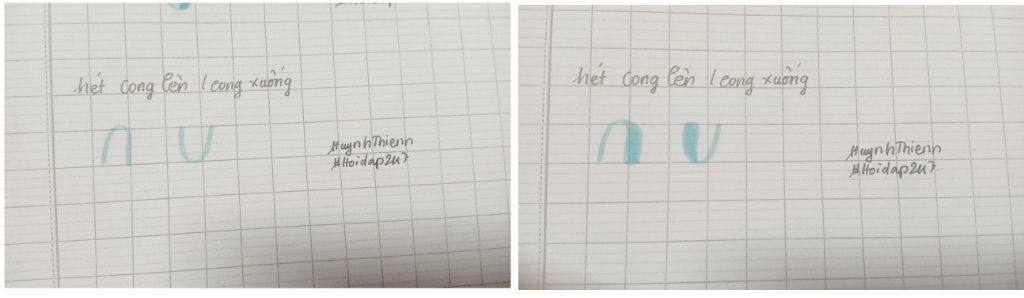 hét cong lên / cong xuống
HuynhThienn
#Hoidap247
hét cong lên / cong xuống
HuynhThienn
#Hoidap247